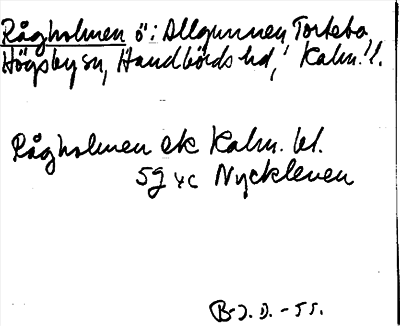 Rågholmen ö i Allgunnen, Tortebo,
Högsby sn, Handbörds hd, Kalm. l.
Rågholmen ek Kalm. bl.
5g vc Nyckleven
B-J. D. - 55.